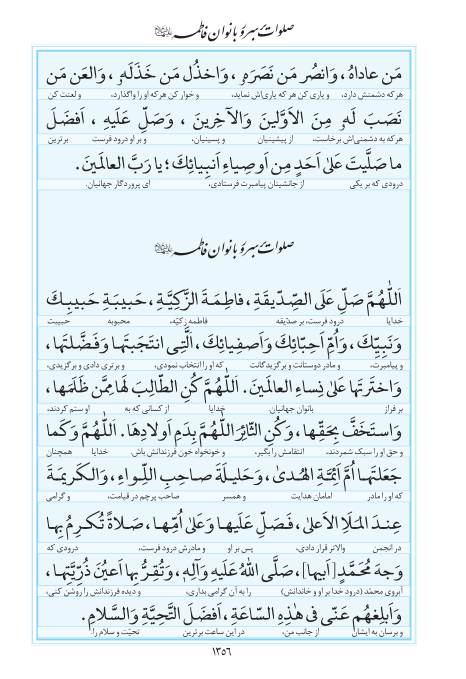 صلوات بر سرور بانوان فاطمه
مَن عاداهُ، وَانصُر مَن نَصَرَهُ، وَاخذُل مَن خَذَلَهُ، وَالعَن مَن
هر که دشمنش دارد، و یاری کن هر که یاری‌اش نماید، و خوار کن هر که او را واگذارد، و لعنت کن
نَصَبَ لَهُ مِنَ الاَوَّلینَ وَالآخِرینَ، وَصَلِّ عَلَیهِ، اَفضَلَ
هر که به دشمنی‌اش برخاست، از پیشینیان و پسینیان، و بر او درود فرست برترین
ما صَلَّیتَ عَلیٰ اَحَدٍ مِن اَوصِیاءِ اَنبِیائِكَ؛ یا رَبَّ العالَمینَ.
درودی که بر یکی از جانشینان پیامبرت فرستادی، ای پروردگار جهانیان.
صلوات بر سرور بانوان فاطمه
اَللّٰهُمَّ صَلِّ عَلَی الصِّدّیقَةِ، فاطِمَةَ الزَّکِیَّةِ، حَبیبَةِ حَبیبِكَ
خدایا درود فرست، بر صدّیقه فاطمه زکیّه، محبوبه حبیبت
وَنَبِیِّكَ، وَاُمِّ اَحِبّائِكَ وَاَصفِیائِكَ، الَّتِی انتَجَبتَها وَفَضَّلتَها،
و پیامبرت، و مادر دوستانت و برگزیدگانت که او را انتخاب نمودی، و برتری دادی و برگزیدی،
وَاختَرتَها عَلیٰ نِساءِ العالَمینَ. اَللّٰهُمَّ کُنِ الطّالِبَ لَها مِمَّن ظَلَمَها،
بر فراز بانوان جهانیان. خدایا از کسانی که به او ستم کردند،
وَاستَخَفَّ بِحَقِّها، وَکُنِ الثّائِرَ اللّٰهُمَّ بِدَمِ اَولادِها. اَللّٰهُمَّ وَکَما
و حق او را سبک شمردند، انتقامش را بگیر، و خونخواه خون فرزندانش باش. خدایا همچنان
جَعَلتَها اُمَّ اَئِمَّةِ الهُدیٰ، وَحَلیلَةَ صاحِبِ اللِّواءِ، وَالکَریمَةَ
که او را مادر امامان هدایت و همسر صاحب پرچم در قیامت، و گرامی
عِندَ المَلَاِ الاَعلیٰ، فَصَلِّ عَلَیها وَعَلیٰ اُمِّها، صَلاةً تُکرِمُ بِها
در انجمن والاتر قرار دادی، پس بر او و مادرش درود فرست، درودی که
وَجهَ مُحَمَّدٍ [اَبیها]، صَلَّی اللّٰهُ عَلَیهِ وَآلِهِ، وَتُقِرُّ بِها اَعیُنَ ذُرِّیَّتِها،
آبروی محمّد (درود خدا بر او و خاندانش) را به آن گرامی بداری، و دیده فرزندانش را روشن کنی،
وَاَبلِغهُم عَنّی فی هٰذِهِ السّاعَةِ، اَفضَلَ التَّحِیَّةِ وَالسَّلامِ.
و برسان به ایشان از جانب من، در این ساعت برترین تحیّت و سلام را.
۱۳۵۶